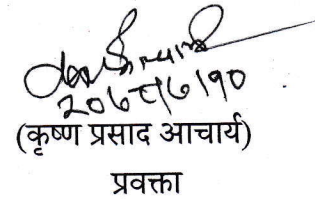 २०७८।७।१०
(कृष्ण प्रसाद आचार्य)
प्रवक्ता